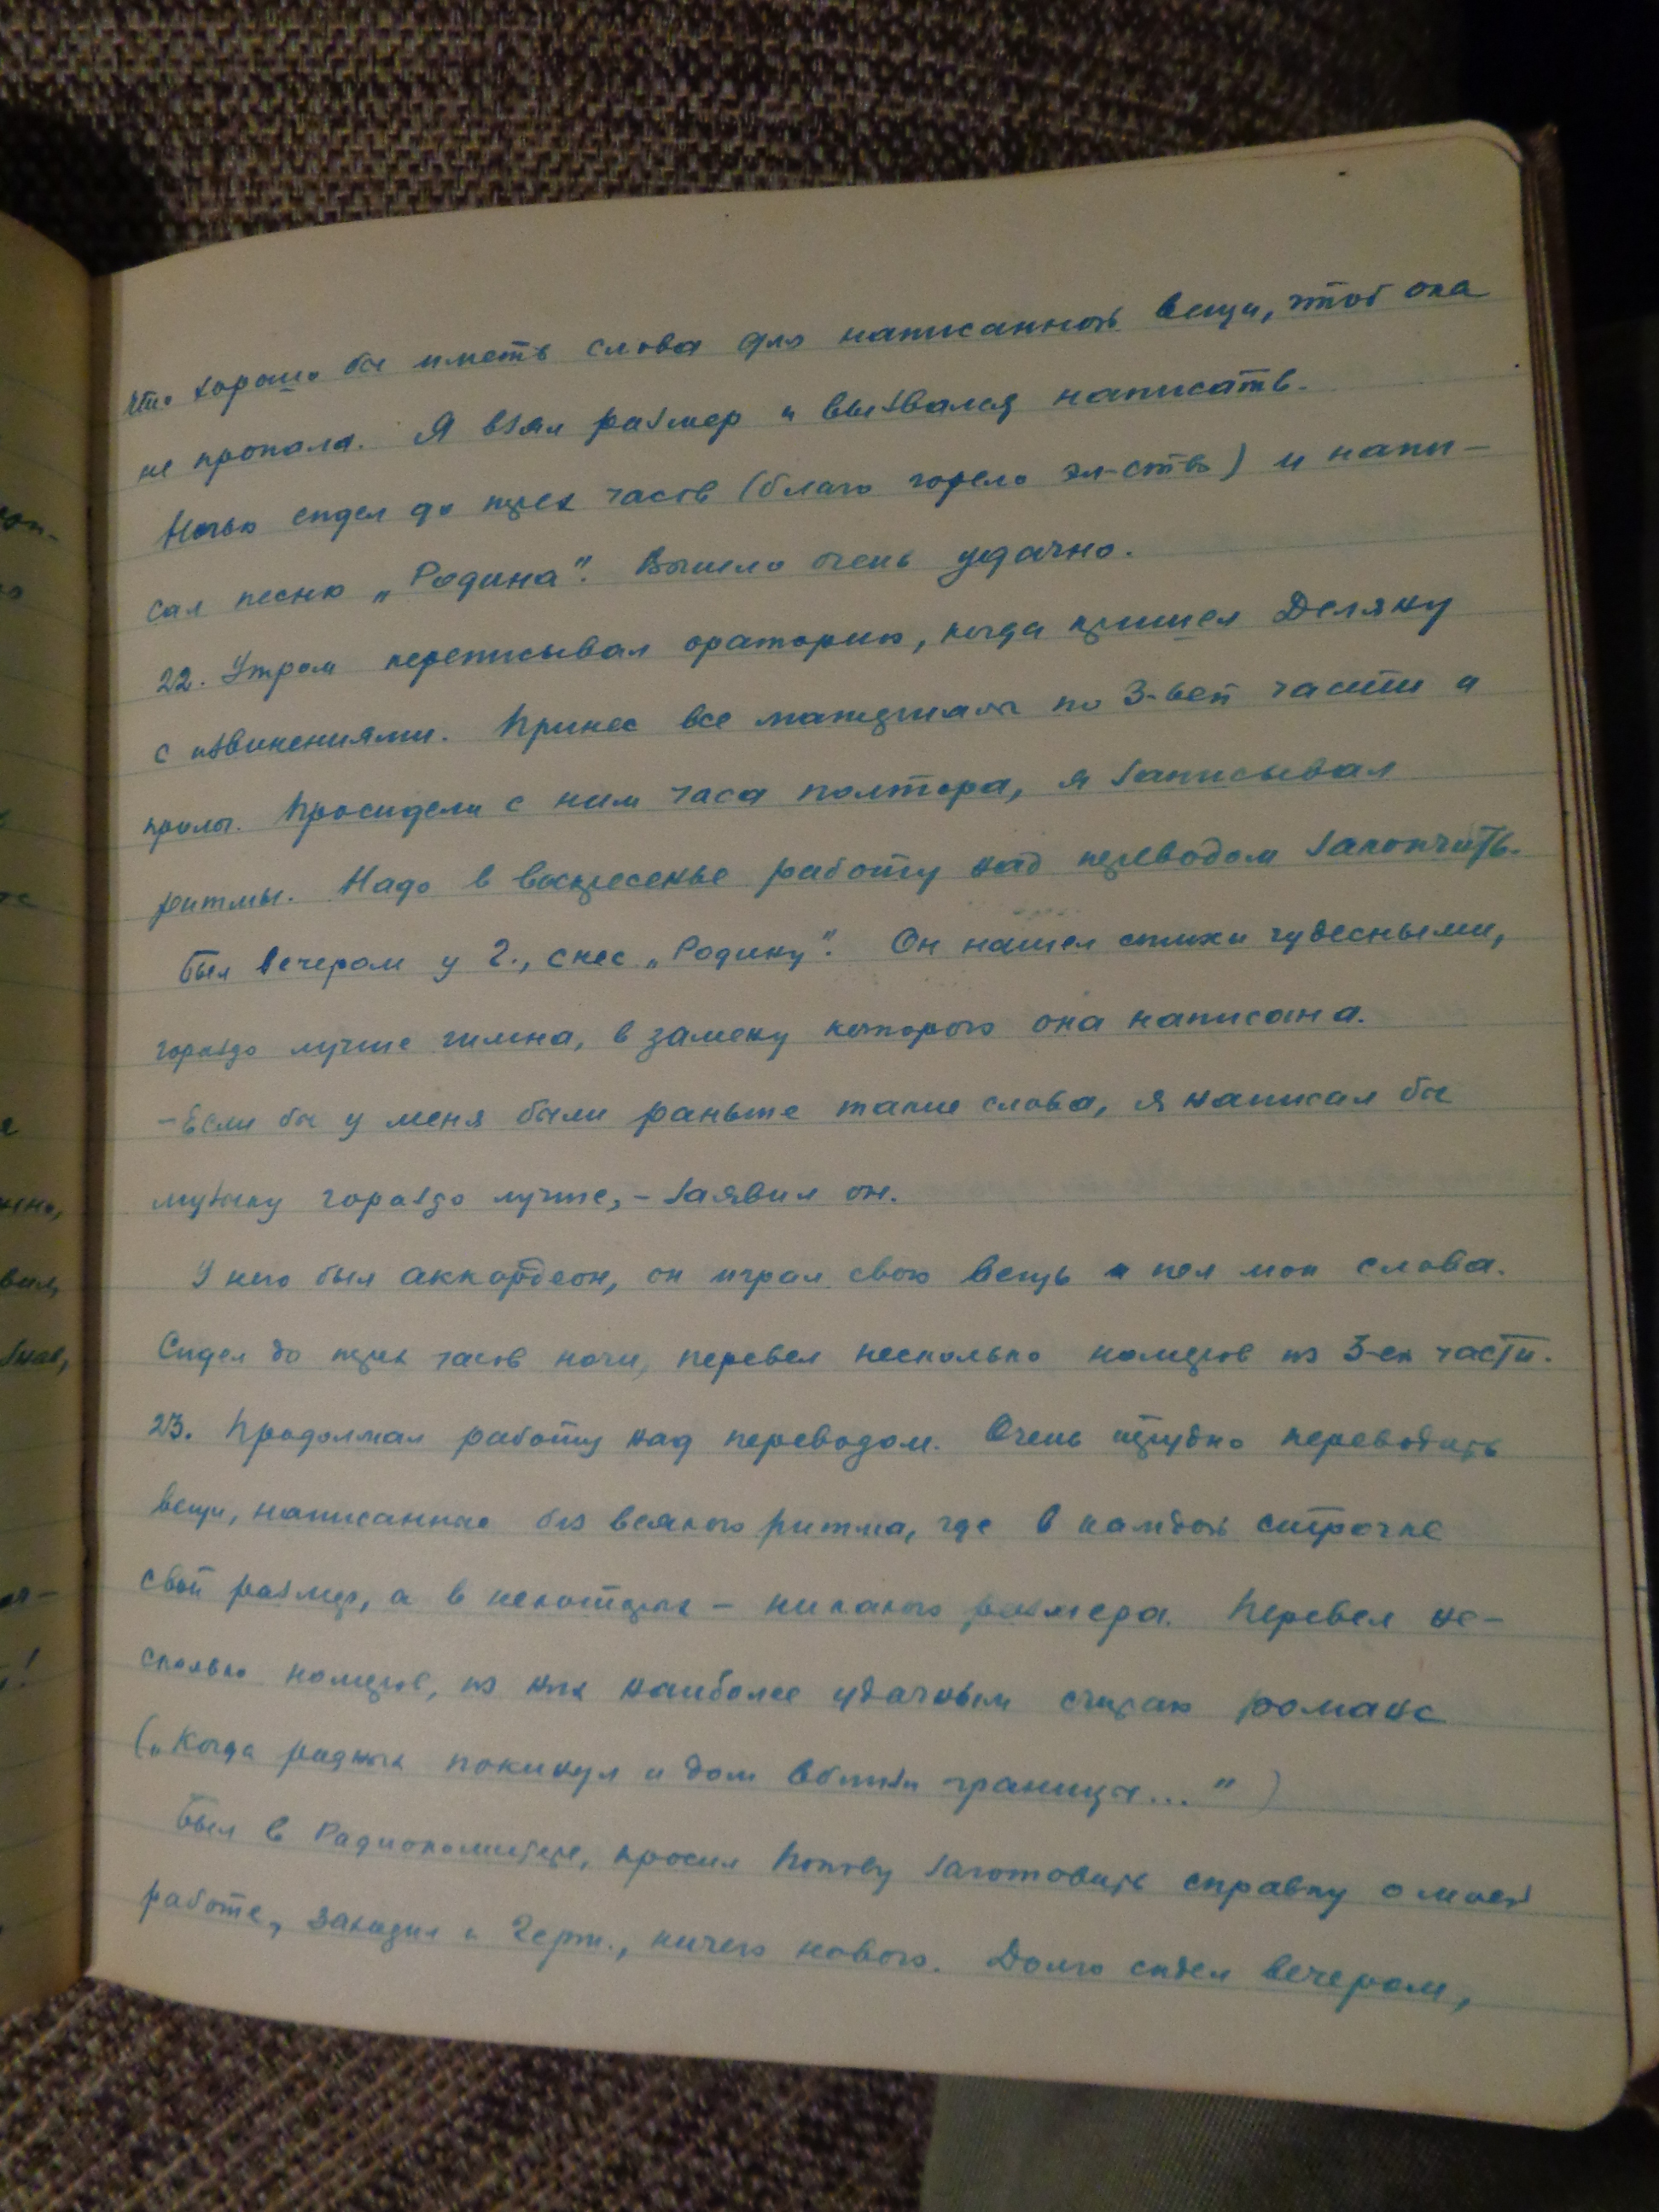 что хорошо бы иметь слова для написанной вещи, чтоб она
не пропала. Я взял размер и вызвался написать.
Ночью сидел до трех часов (благо горело эл-ство) и напи-
сал песню „Родина". Вышло очень удачно.
22. Утром переписывал ораторию, когда пришел Деляку
с извинениями. Принес все материалы по 3-ьей части и
Просидели с ним часа полтора, я записывал
ритмы. Надо в воскресенье работу над переводом закончить.
Был вечером у Г., снес „Родину". Он нашел стихи чудесными,
гораздо лучше гимна, в замену которого она написана.
- Если бы у меня были раньше такие слова, я написал бы
музыку гораздо лучше, - заявил он.
У него был аккордеон, он играл свою вещь и пел мои слова.
Сидел до трех часов ночи, перевел несколько номеров из 3-ей части.
23. Продолжал работу над переводом. Очень трудно переводить
вещи, написанные без всякого ритма, где в каждой строчке
свой размер, а в некоторых - никакого размера. Перевел не-
сколько номеров, из них наиболее удачным считаю романс
(„Когда родных покинул и дом вблизи границы..." )
Был в Радиокомитете, просил Попову заготовить справку о моей
работе, заходил к Черт., ничего нового. Долго сидел вечером,
вил,
!